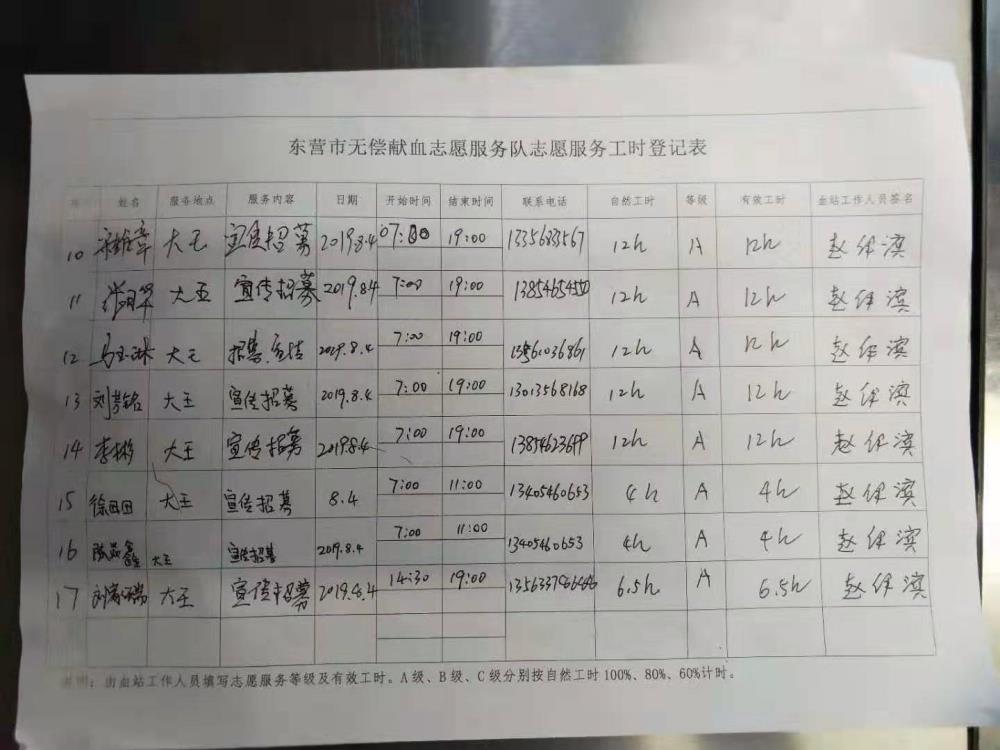 东营市无偿献血志愿服务队志愿服务工时登记表
姓名 服务地点 服务内容 日期 开始时间 结束时间 联系电话 自然工时 等级 有效工时 血站工作人员签名
10 大王 宣传招募 2019.8.4 07:00 19:00 1335683567 12h A 12h 赵伊滨
11 大王 宣传招募 2019.8.4 7:00 19:00 12h A 12h 赵伊滨
12 马玉琳 大王 招募.宣传 2019.8.4 7:00 19:00 12h A 12h 赵伊滨
13 大王 宣传招募 2019.8.4 7:00 19:00 13013568168 12h A 12h 赵伊滨
14 李彬 大王 宣传招募 2019.8.4 7:00 19:00 12h A 12h 赵伊滨
15 徐田田 大王 宣传招募 8.4 7:00 11:00 13405460653 4h A 4h 赵伊滨
16 大王 宣传招募 2019.8.4 7:00 11:00 13405460653 4h A 4h 赵伊滨
17 大王 宣传招募 2019.8.4 14:30 19:00 6.5h A 6.5h 赵伊滨
说明：由血站工作人员填写志愿服务等级及有效工时。A级、B级、C级分别按自然工时100%、80%、60%计时。